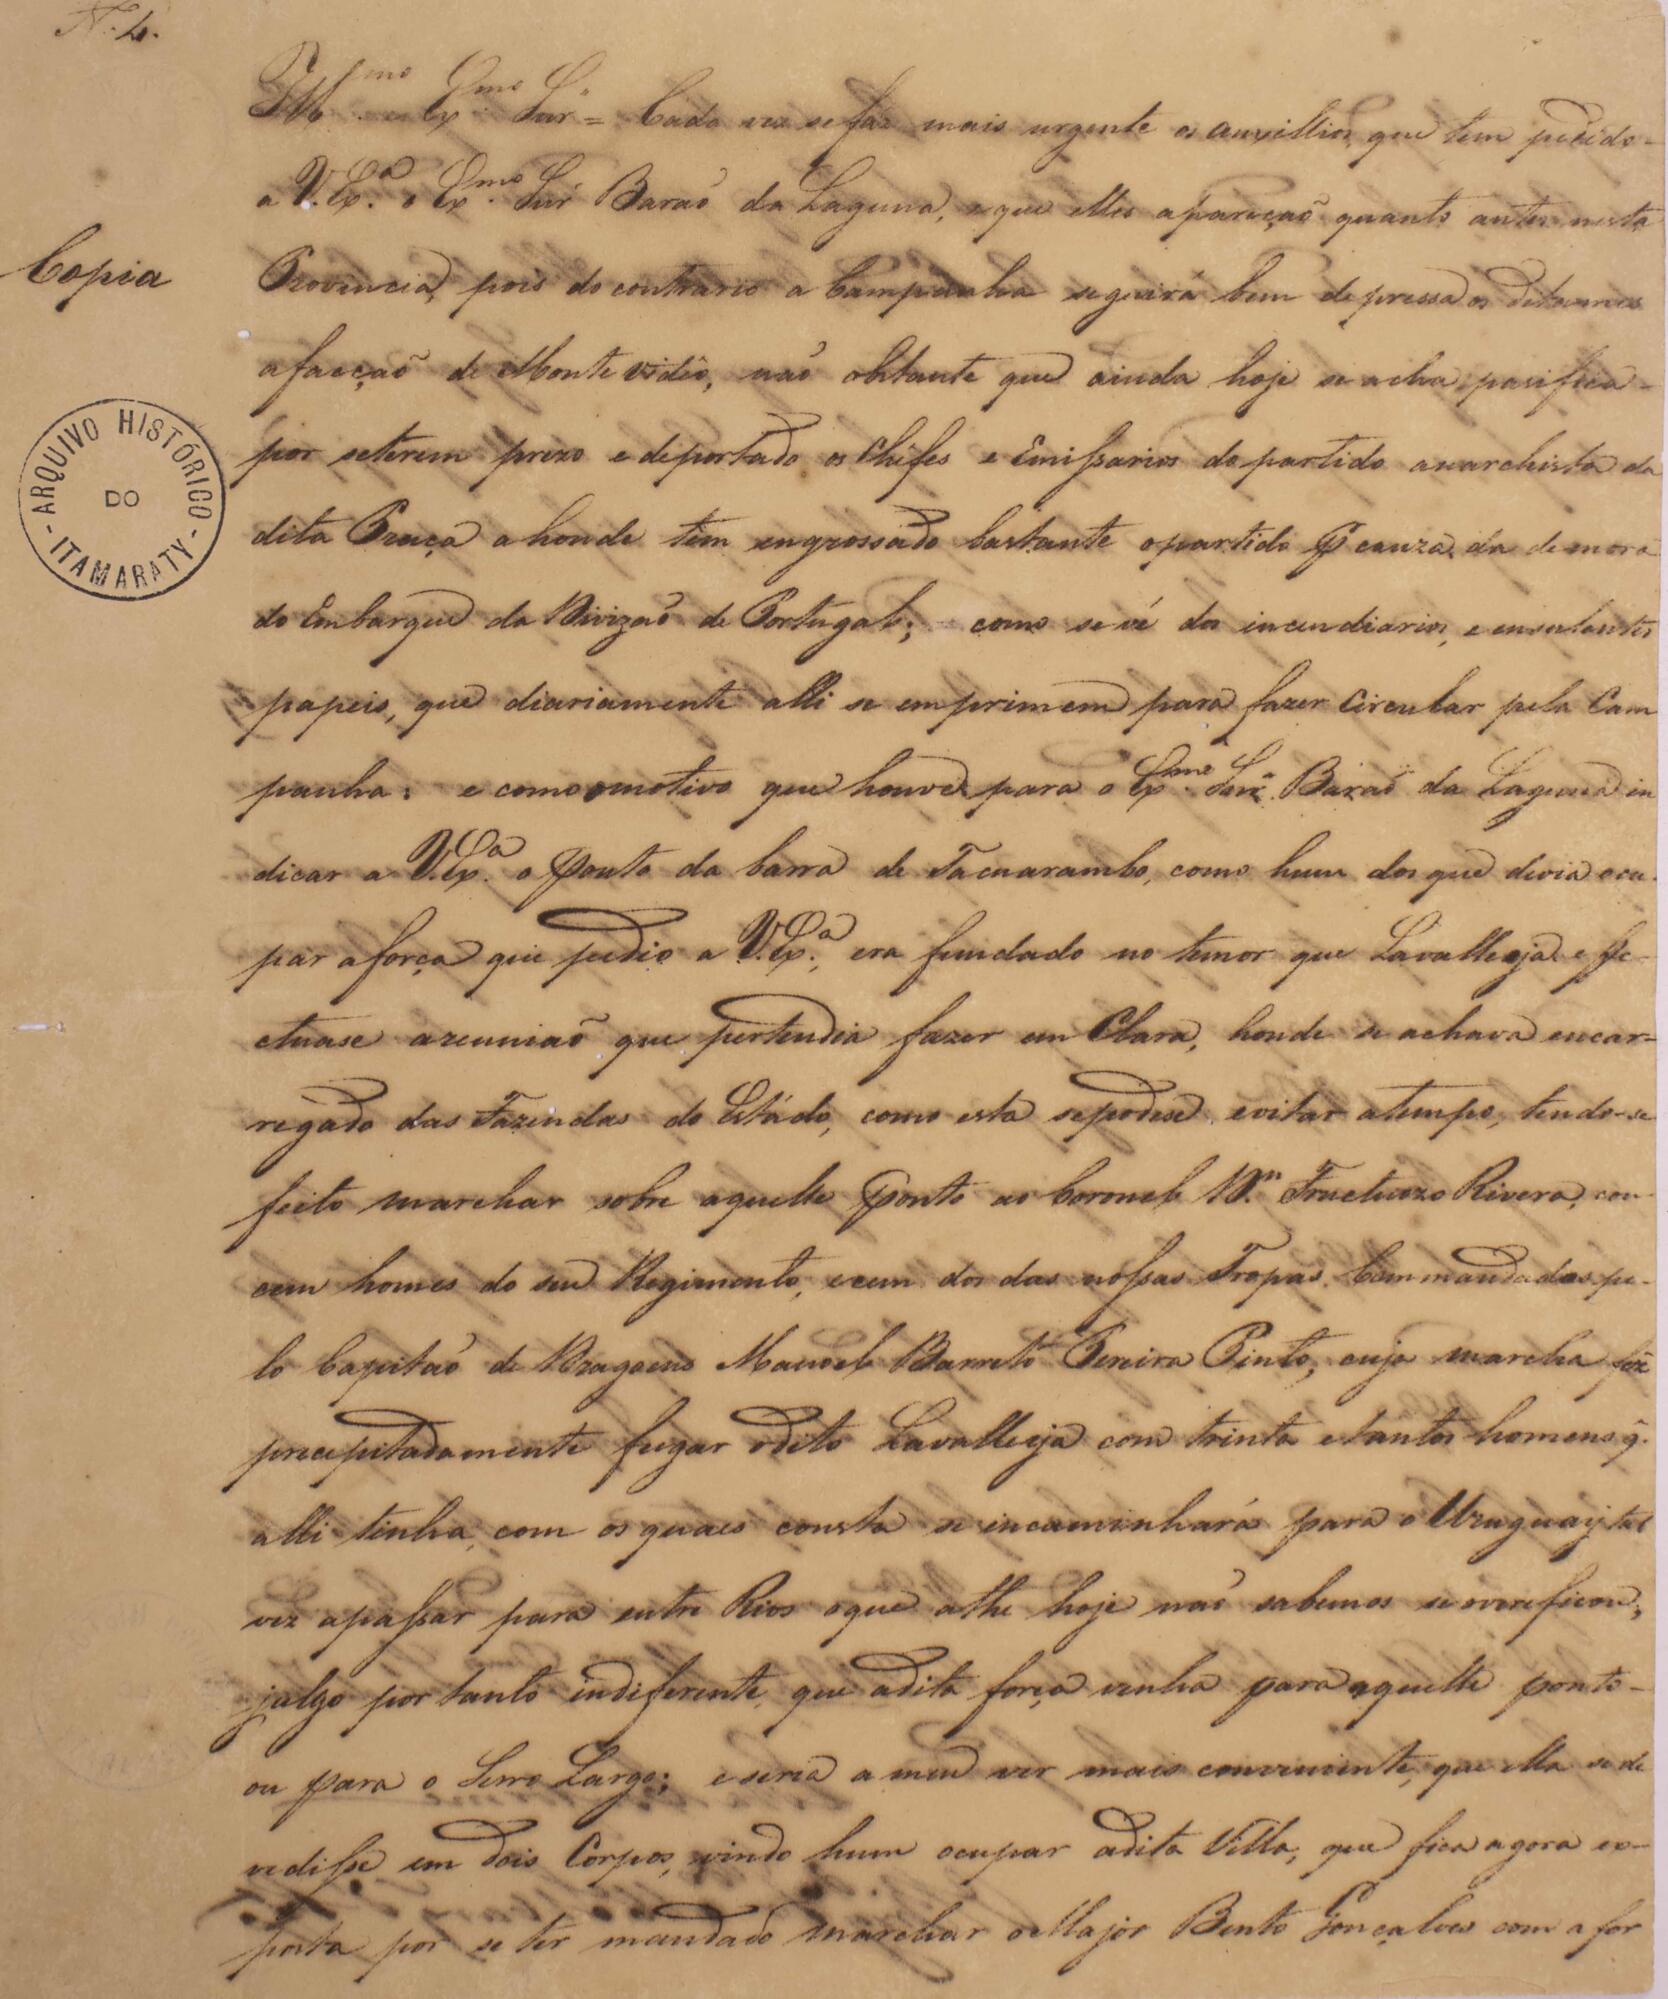 N. 4.
Ill.mo Ex.mo Snr = Cada vez se faz mais urgente os auxillios, que tem pedido
a V. Ex.a o Ex.mo Snr Baraõ da Laguna, e que elles apareçaõ quanto antes nesta
Copia
Provincia, pois do contrario a Campanha seguirá bem depressa os dictames
a facçaõ de Montevidêo, naõ obstante que ainda hoje se acha pasifica
por seterem prezo e deportado os Chefes e Emissarios do partido anarchista da
dita Praça ahonde tem engrossado bastante opartido p cauza da demora
do Embarque da Divizaõ de Portugal; como se vé dos incendiarios, e ensultantes
papeis, que diariamente alli se emprimem para fazer Circular pela Cam
panha: e como omotivo que houve para o Ex.mo Snr. Baraõ da Laguna in
dicar a V. Ex.a o Ponto da barra de Tacuarambo, como hum dos que devia ocu
par aforça que pedio a V. Ex.a, era fundado no temor que Lavalleja efe-
ctuase areuniaõ que pertendia fazer em Clara, honde se achava encar=
regado das Fazendas do Estádo, como esta sepodese evitar atempo, tendo-se
feito marchar sobre aquelle Ponto ao Coronel D.n Fructuozo Rivera, com
cem homes do seu Regimento, ecem dos das nossas Tropas Commandadas pe-
lo Capitaõ de Dragoens Manoel Barreto Pereira Pinto, cuja marcha fêz
precepitadamente fugar odito Lavalleja com trinta etantos homens q.
alli tinha, com os quaes consta se incaminhará para o Uruguay tal
vez apassar para entre Rios oque athe hoje naõ sabemos se overeficou,
julgo por tanto indiferente, que adita força venha para aquelle ponto
ou para o Serro Largo; e seria a meu ver mais conveniente, que ella se de
vedisse em dois Corpos, vindo hum ocupar adita Villa, que fica agora ex-
posta por se ter mandado marchar o Major Bento Gonçalves com a for
ARQUIVO HISTÓRICO
DO
ITAMARATY